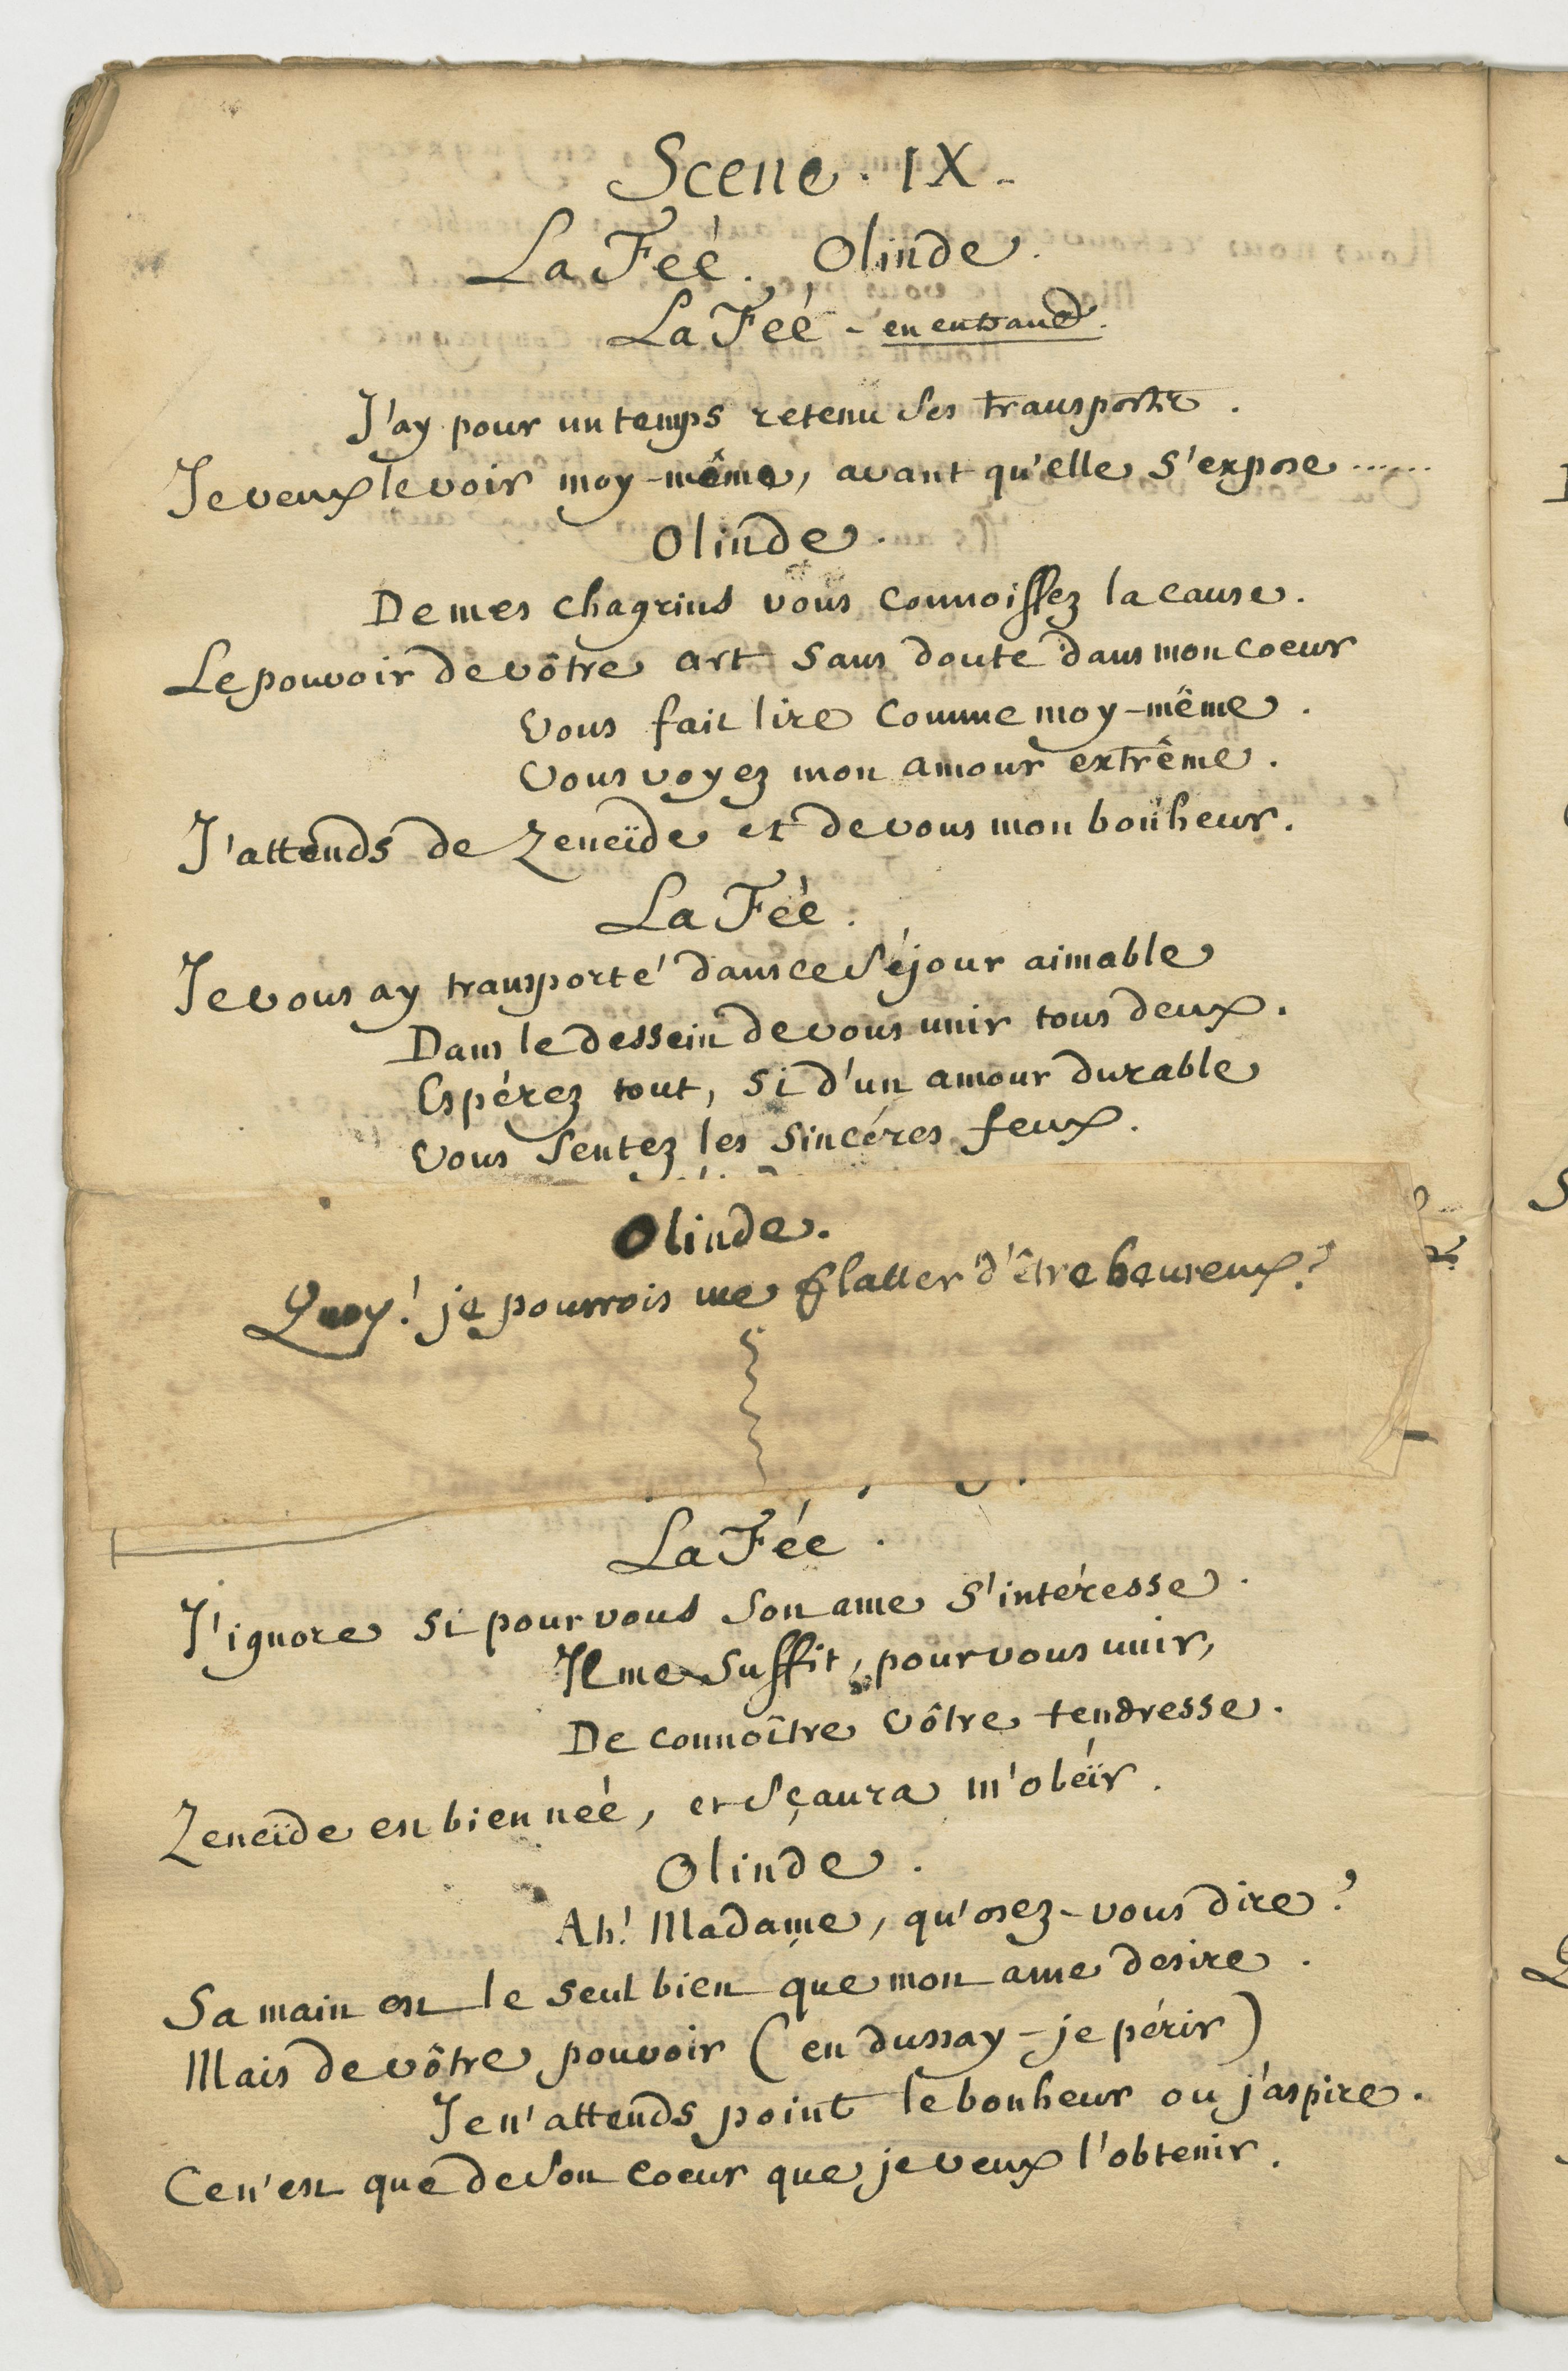 Scene. IX.
La Feé. Olinde.
La Feé - en entrant.
J'ay pour un temps retenu ses transports.
Je veux le voir moy-même, avant qu'elle s'expose ......
Olinde.
De mes chagrins vous connoissez la cause.
Le pouvoir de vôtre art sans doute dans mon coeur
Vous fait lire comme moy-même.
Vous voyez mon amour extrême.
J'attends de Zeneïde et de vous mon bonheur.
La Feé.
Je vous ay transporté dans ce séjour aimable
Dans le dessein de vous unir tous deux.
Espérez tout, si d'un amour durable
Vous sentez les sincéres feux.
Olinde.
Quoy! je pourrois me flatter d'être heureux?
La Fée.
J'ignore si pour vous son ame s'intéresse.
Il me suffit, pour vous unir,
De connoître vôtre tendresse.
Zeneïde est bien neé, et sçaura m'obéïr.
Olinde.
Ah! Madame, qu'osez-vous dire?
Sa main est le seul bien que mon ame desire.
Mais de vôtre pouvoir (en dussay-je périr)
Je n'attends point le bonheur ou j'aspire.
Ce n'est que de son coeur que je veux l'obtenir.